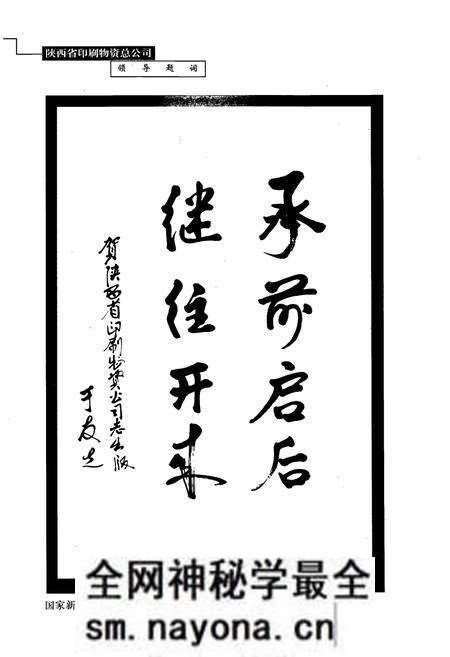 陕西省印刷物资总公司
领导题词
承前启后
继往开来
贺陕西省印刷物资公司志出版
于友先
国家新
全网神秘学最全
sm.nayona.cn